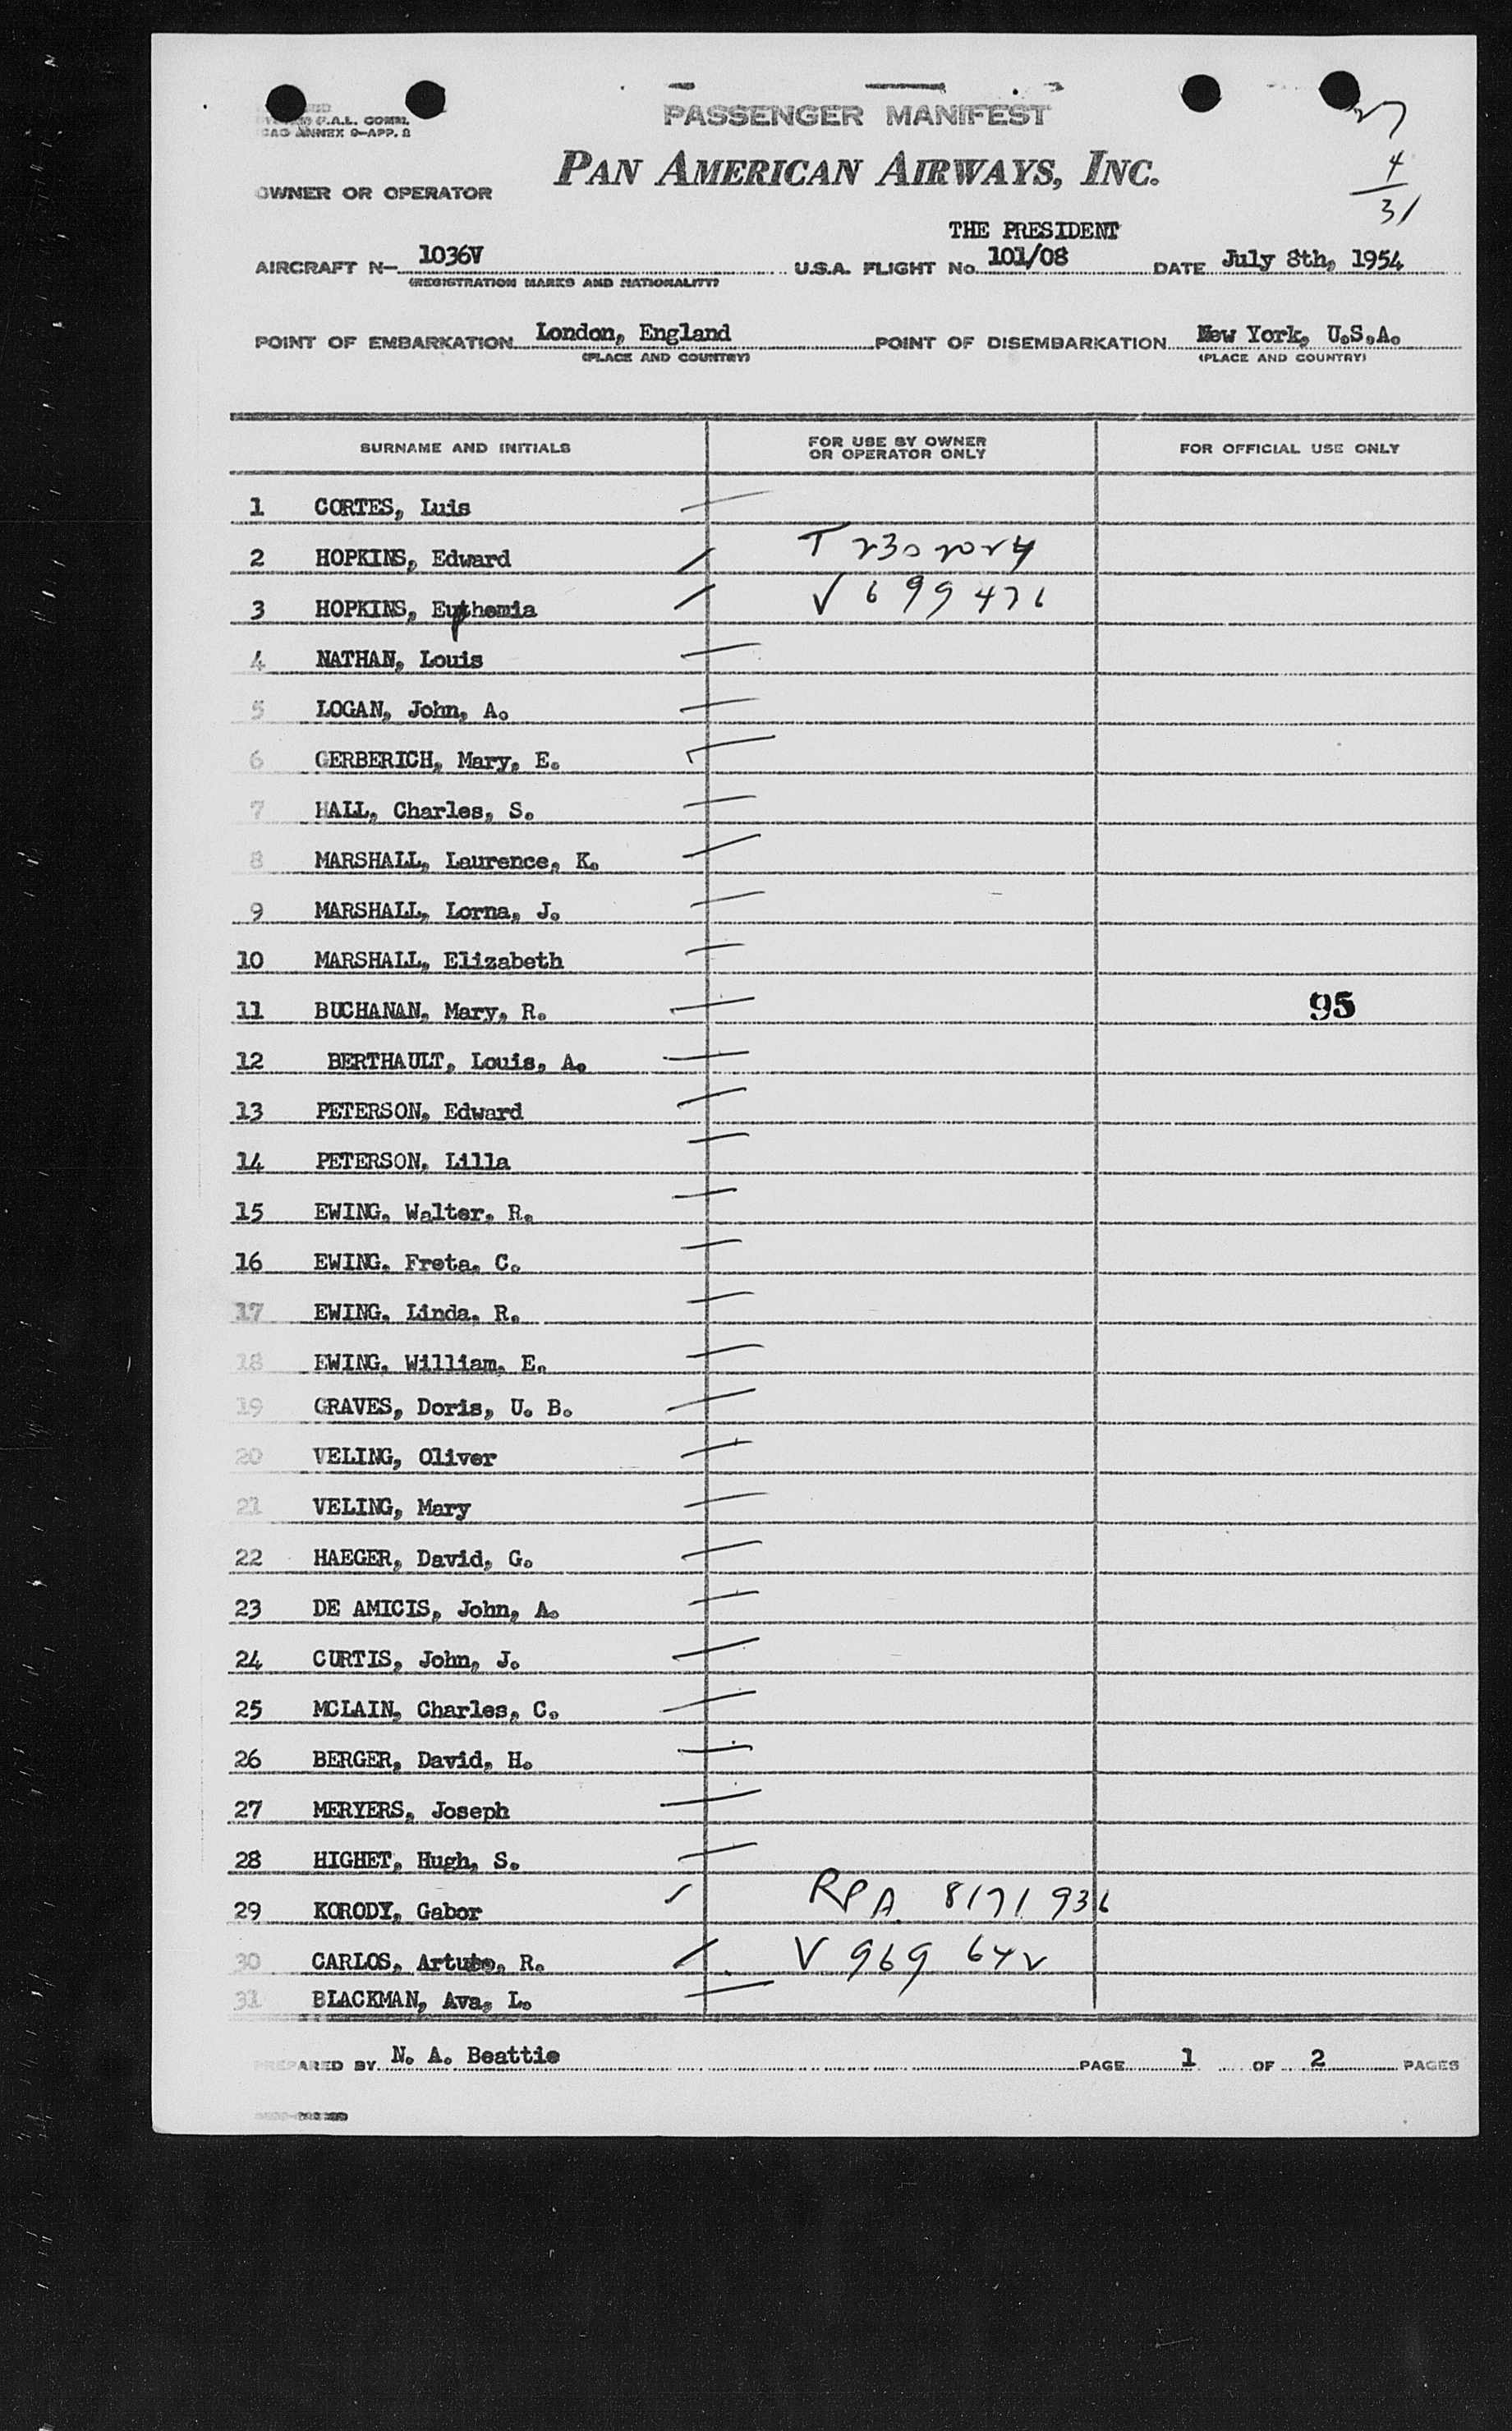 PASSENGER MANIFEST
F.A.L. COMM.
ANNEX 9-APP. 2
27
4
31
PAN AMERICAN AIRWAYS, INC.
OWNER OR OPERATOR
THE PRESIDENT
AIRCRAFT N- 1036V U.S.A. FLIGHT No. 101/08 DATE July 8th, 1954
(REGISTRATION MARKS AND NATIONALITY)
POINT OF EMBARKATION London, England POINT OF DISEMBARKATION New York, U.S.A.
(PLACE AND COUNTRY) (PLACE AND COUNTRY)
SURNAME AND INITIALS FOR USE BY OWNER OR OPERATOR ONLY FOR OFFICIAL USE ONLY
1 CORTES, Luis
2 HOPKINS, Edward T 2302024
3 HOPKINS, Euphemia V 699476
4 NATHAN, Louis
5 LOGAN, John, A.
6 GERBERICH, Mary, E.
7 HALL, Charles, S.
8 MARSHALL, Laurence, K.
9 MARSHALL, Lorna, J.
10 MARSHALL, Elizabeth
11 BUCHANAN, Mary, R. 95
12 BERTHAULT, Louis, A.
13 PETERSON, Edward
14 PETERSON, Lilla
15 EWING, Walter, R.
16 EWING, Freta, C.
17 EWING, Linda, R.
18 EWING, William, E.
19 GRAVES, Doris, U. B.
20 VELING, Oliver
21 VELING, Mary
22 HAEGER, David, G.
23 DE AMICIS, John, A.
24 CURTIS, John, J.
25 MCLAIN, Charles, C.
26 BERGER, David, H.
27 MERYERS, Joseph
28 HIGHET, Hugh, S.
29 KORODY, Gabor RPA 8171936
30 CARLOS, Arturo, R. V 969 642
31 BLACKMAN, Ava, L.
PREPARED BY N. A. Beattie PAGE 1 OF 2 PAGES